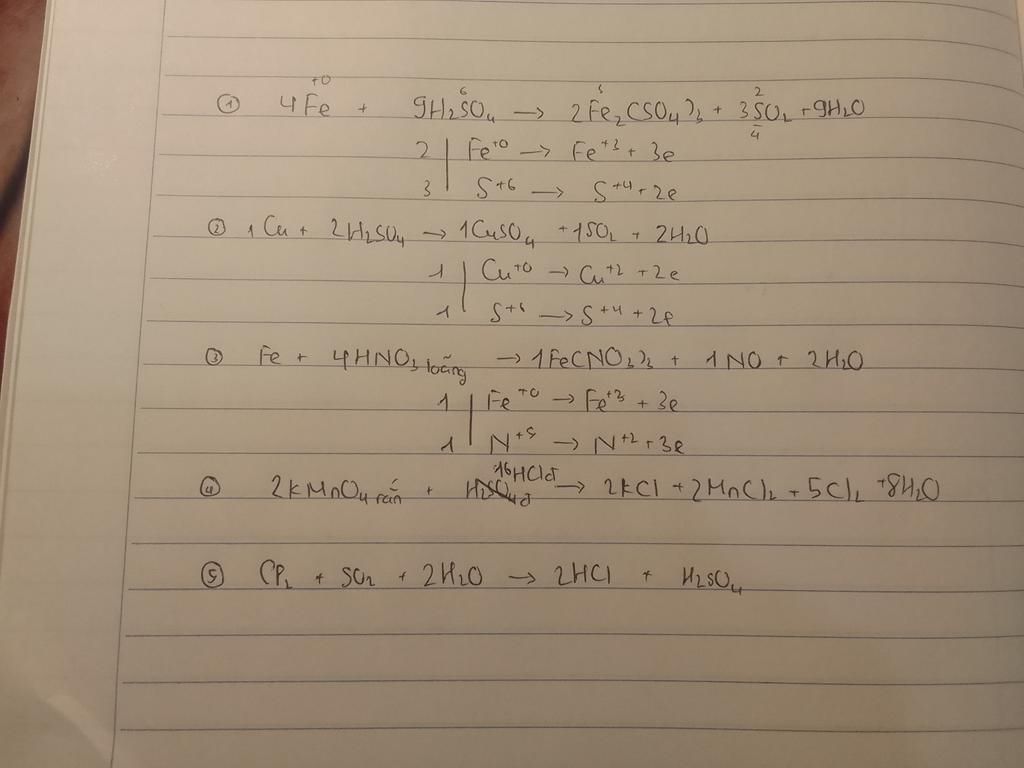 +0 6 3 2
① 4Fe + 9H₂SO₄ → 2Fe₂(SO₄)₃ + 3SO₂ + 9H₂O
4
2 | Fe⁺⁰ → Fe⁺³ + 3e
3 | S⁺⁶ → S⁺⁴ + 2e
② 1Cu + 2H₂SO₄ → 1CuSO₄ + 1SO₂ + 2H₂O
1 | Cu⁺⁰ → Cu⁺² + 2e
1 | S⁺⁶ → S⁺⁴ + 2e
③ Fe + 4HNO₃ loãng → 1Fe(NO₃)₃ + 1NO + 2H₂O
1 | Fe⁺⁰ → Fe⁺³ + 3e
1 | N⁺⁵ → N⁺² + 3e
16HClđ
④ 2KMnO₄ rắn + H₂SO₄đ → 2KCl + 2MnCl₂ + 5Cl₂ + 8H₂O
⑤ Cl₂ + SO₂ + 2H₂O → 2HCl + H₂SO₄